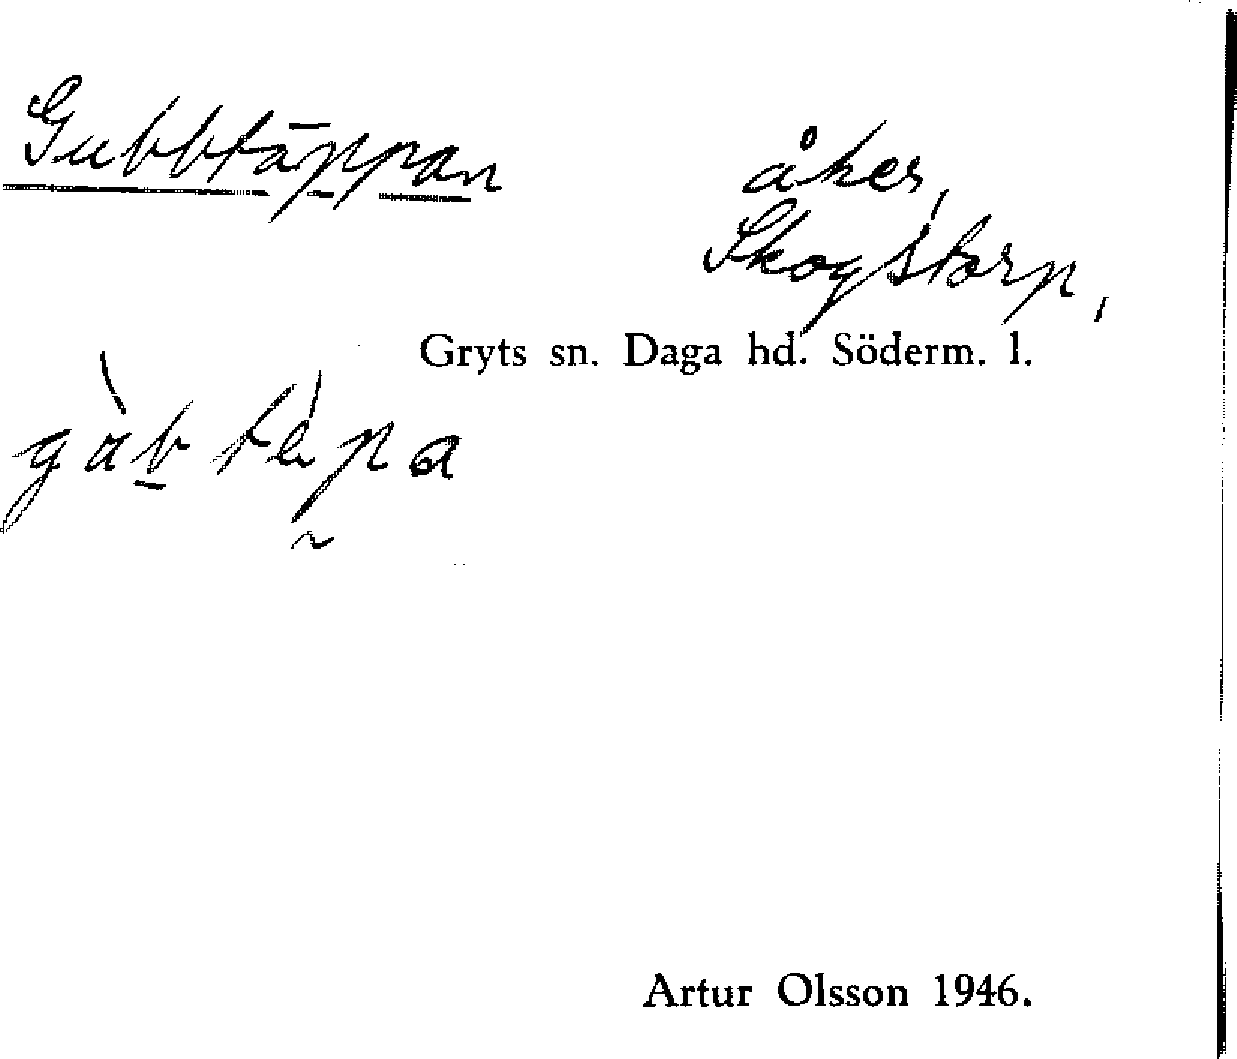 Gubbtäppan
åker,
Skogstorp,
Gryts sn. Daga hd. Söderm. l.
Artur Olsson 1946.